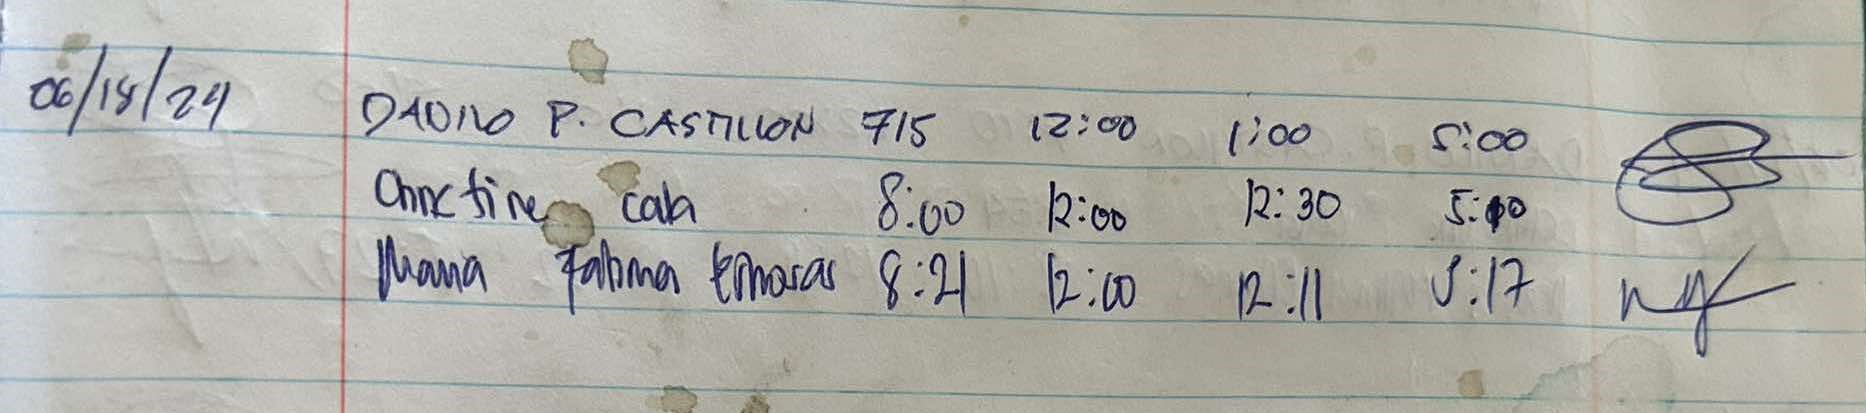 06/18/24 DADILO P. CASTILLON 715 12:00 1:00 5:00
Christine cala 8:00 12:00 12:30 5:10
Maria Fatima 8:21 12:00 12:11 5:17